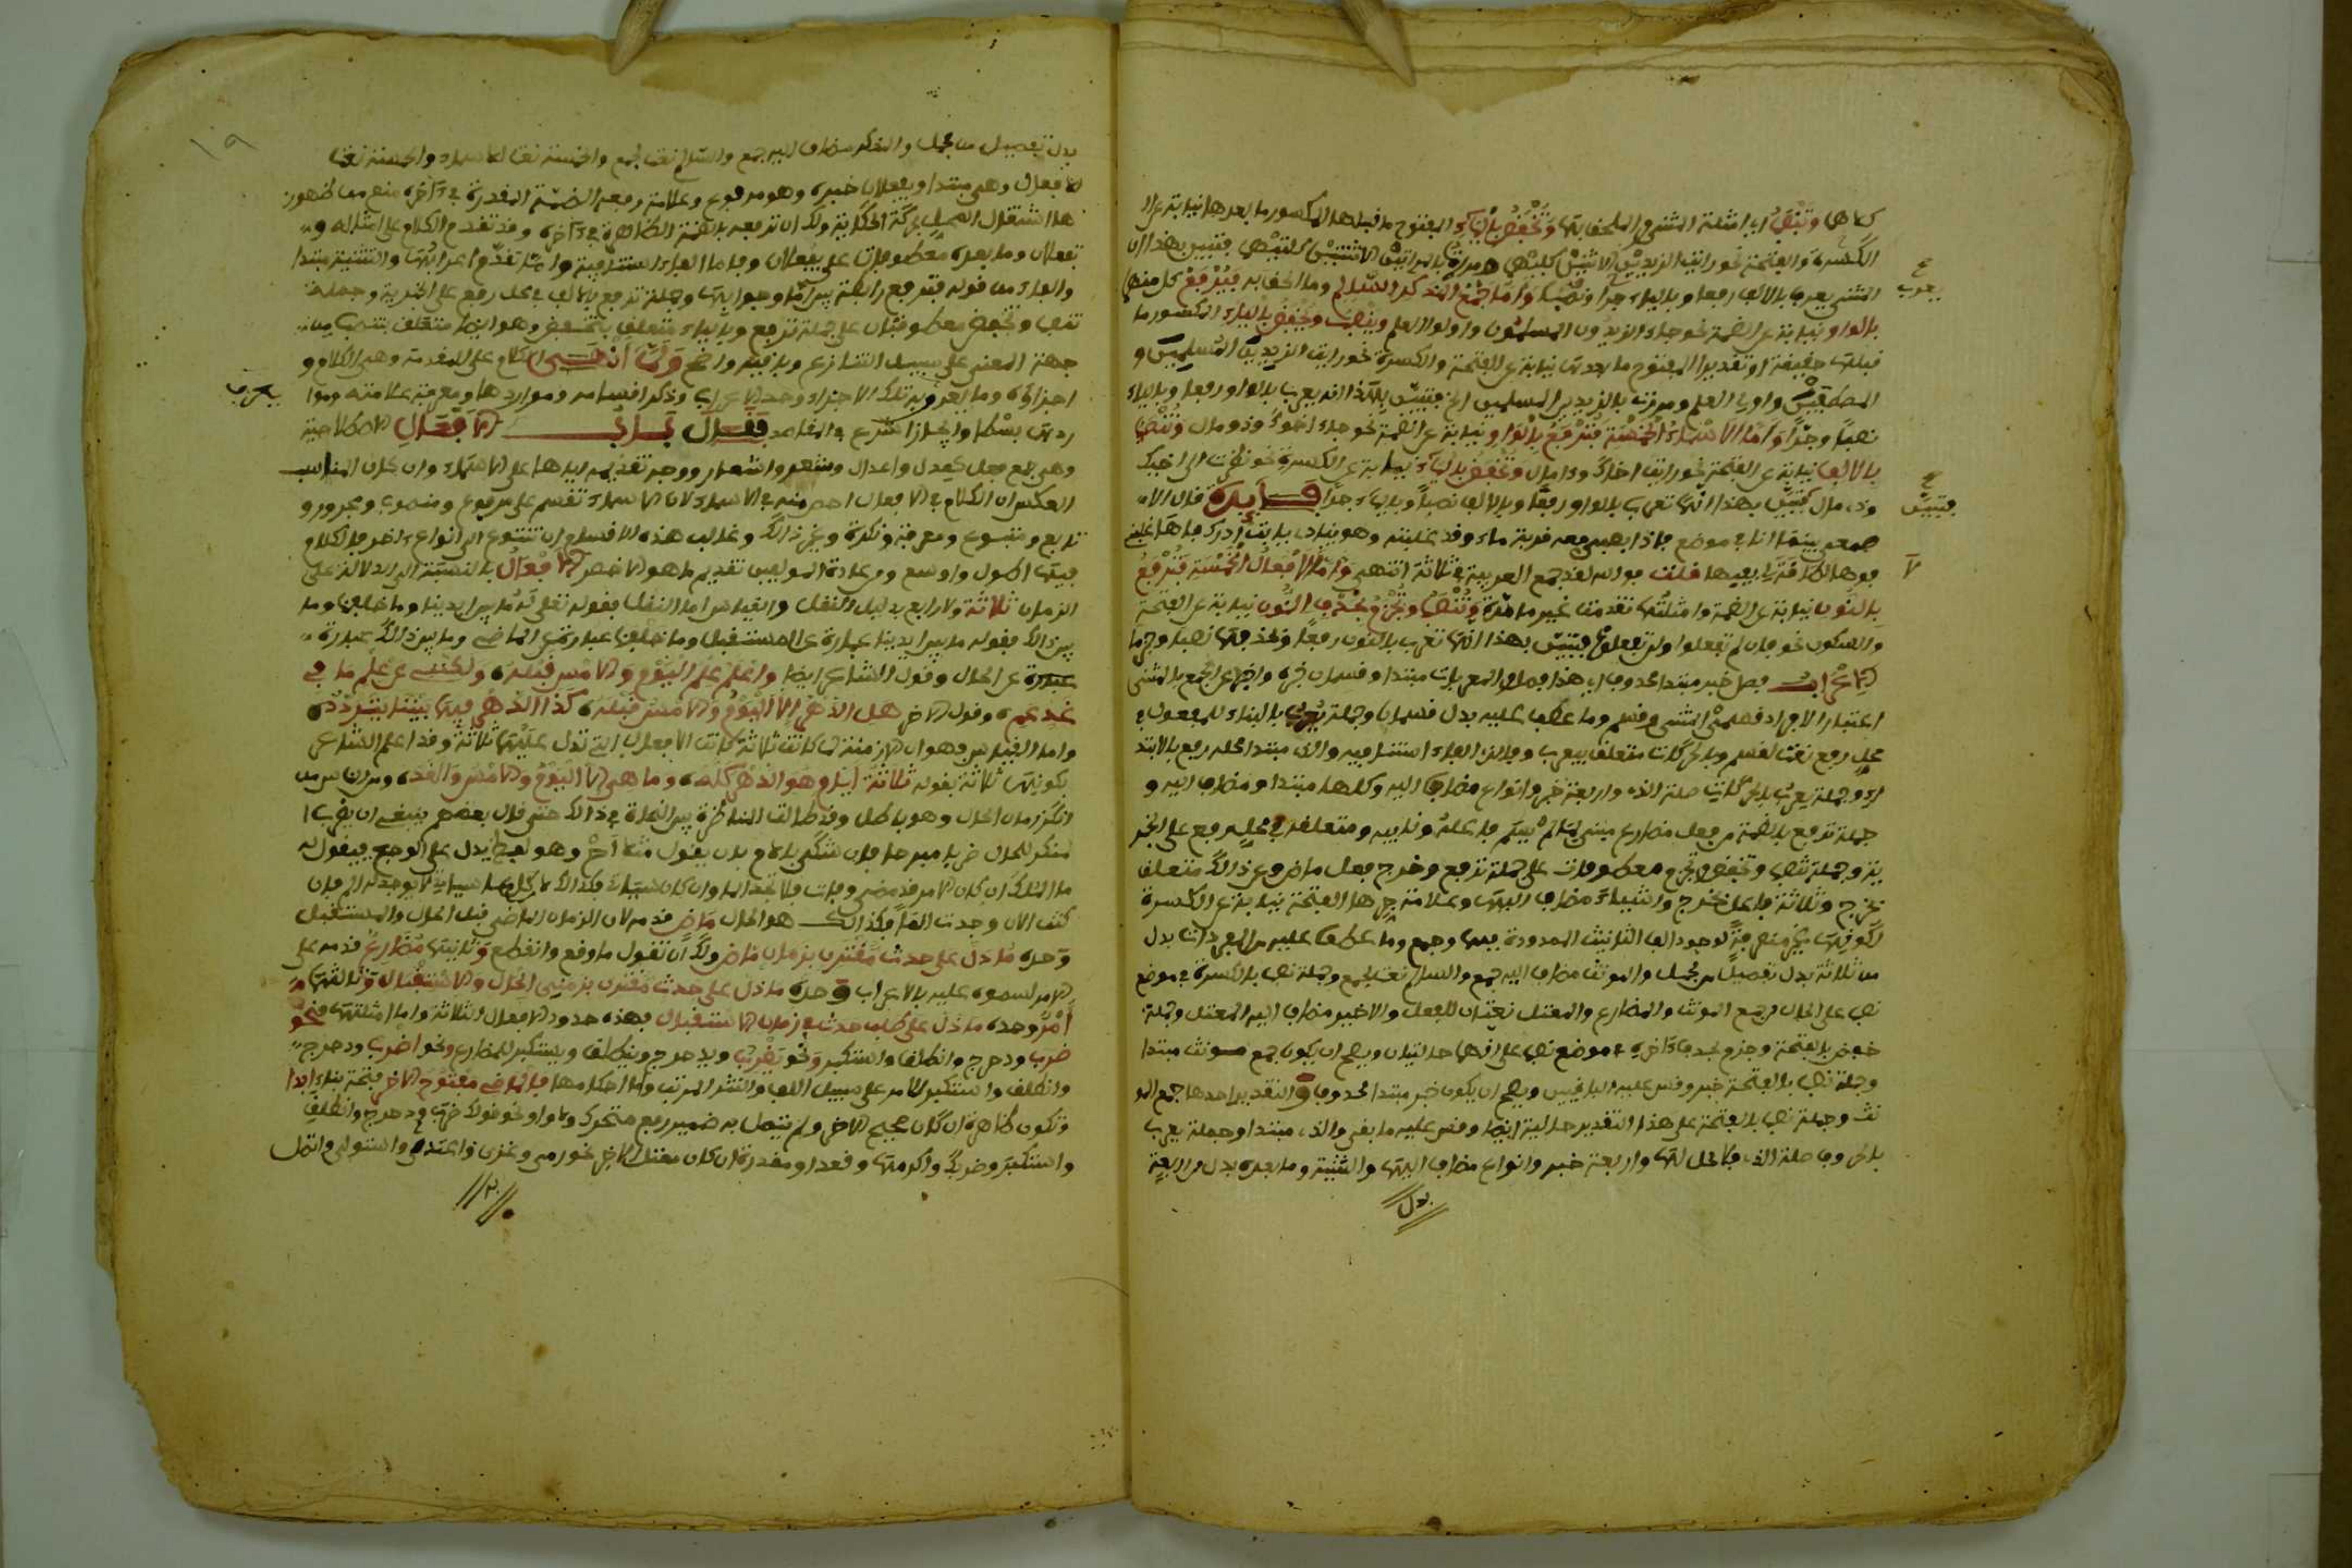 كلاهما وتنصب أي أمثلة المثنى والملحق بها وتخفض بالياء المفتوح ما قبلها المكسور ما بعدها نيابة عن
الكسرة والفتحة نحو رأيت الزيدين الاثنين كليهما ومررت بالمرأتين الاثنتين كلتيهما فتبين بهذا أن
المثنى يعرب بالألف رفعا وبالياء جرا ونصبا وأما جمع المذكر السالم وما ألحق به فيرفع كل منهما
بالواو نيابة عن الضمة نحو جاء الزيدون المسلمون وأولوا العلم وينصب ويخفض بالياء المكسور ما
قبلها حقيقة أو تقديرا المفتوح ما بعدها نيابة عن الفتحة والكسرة نحو رأيت الزيدين المسلمين و
المصطفين وأولي العلم ومررت بالزيدين المسلمين الخ فتبين بهذا أنه يعرب بالواو رفعا وبالياء
نصبا وجرا وأما الأسماء الخمسة فترفع بالواو نيابة عن الضمة نحو جاء أخوك وذو مال وتنصب
بالألف نيابة عن الفتحة نحو رأيت أخاك وذا مال وتخفض بالياء نيابة عن الكسرة نحو نظرت إلى أخيك
وذي مال فتبين بهذا أنها تعرب بالواو رفعا وبالألف نصبا وبالياء جرا فائدة قال الا
صمعي بينما أنا في موضع فإذا بصبي معه قربة ماء وقد غلبته وهو ينادي يا أبت أدرك فاها غلبني
فوها لا طاقة لي بفيها قلت فوالله لقد جمع العربية في ثلاثة انتهى وأما الأفعال الخمسة فترفع
بالنون نيابة عن الضمة وأمثلتها تقدمت غير ما مرة وتنصب وتجزم بحذف النون نيابة عن الفتحة
والسكون نحو فإن لم تفعلوا ولن تفعلوا فتبين بهذا أنها تعرب بالنون رفعا وبحذفها نصبا وجزما
الإعراب فصل خبر مبتدا محذوف أي هذا فصل والمعربات مبتدا وقسمان خبره وأخبر عن الجمع بالمثنى
اعتبارا
محل رفع نعت لقسم وبالحركات متعلق بيعرب وفالذي الفاء استئنافية والذي مبتدا محله رفع بالابتد
اء وجملة يعرب بالحركات صلة الذي وأربعة خبر وأنواع مضاف إليه وكلها مبتدا ومضاف إليه و
جملة ترفع بالضمة
وجملة تنصب وتخفض وتجزم معطوفات على جملة ترفع وخرج فعل ماض وعن ذلك متعلق
بخرج وثلاثة فاعل بخرج وأشياء مضاف إليها وعلامة جرها الفتحة نيابة عن الكسرة
لوجود ألف التأنيث الممدودة فيها وجمع وما عطف عليه
من ثلاثة بدل تفصيل من مجمل والمؤنث مضاف إليه جمع والسالم نعت لجمع وجملة نصب بالكسرة في موضع
نصب على الحال وجمع المؤنث والمضارع والمعتل نعتان للفعل والأخير مضاف إليه المعتل وجملة
خفض بالفتحة وجزم بحذف آخره في موضع نصب على أنهما حالتان ويصح أن يكون جمع مؤنث مبتدا
وجملة نصب بالفتحة خبر وقس عليه الباقيين ويصح أن يكون خبر مبتدا محذوف والتقدير أحدها جمع المو
نث وجملة نصب بالفتحة على هذا التقدير حالية أيضا وقس عليه ما بقي والذي مبتدا وجملة يعرب
بالحروف صلة الذي فلا محل لها وأربعة خبر وأنواع مضاف إليها والتثنية وما بعده بدل من أربعة
بدل
يعرب
فتبين
لا
بدل تفصيل من مجمل والمذكر مضاف إليه جمع والسالم نعت لجمع والخمسة نعت الأسماء والخمسة نعت
الأفعال وهي مبتدا ويفعلان خبره وهو مرفوع وعلامة رفعه الضمة المقدرة في آخره منع من ظهور
ها اشتغال المحل بحركة الحكاية ولك أن ترفعه بالضمة الظاهرة في آخره وقد تقدم الكلام على أمثاله و
تفعلان وما بعده معطوفات على يفعلان وفأما الفاء استئنافية وأما تقدم إعرابها والتثنية مبتدا
والفاء من قوله فترفع رابطة بين أما وجوابها وجملة ترفع بالألف في محل رفع على الخبرية وجملة
تنصب وتخفض معطوفتان على جملة ترفع وبالياء متعلق بتخفض وهو أيضا متعلق بتنصب من
جهة المعنى على سبيل التنازع وباقيه واضح ولما أنهى الكلام على المقدمة وهي الكلام و
أجزاؤه وما يعرف به تلك الأجزاء وحد الإعراب وذكر أقسامه ومواردها ومعرفة علاماته وموا
ردها بسطا وإيجازا شرع في المقاصد فقال باب الأفعال الاصطلاحية
وهي جمع فعل كعدل وأعدال وشعر وأشعار ووجه تقديمه إياها على الأسماء وإن كان المناسب
العكس أن الكلام في الأفعال أحصر منه في الأسماء لأن الأسماء تنقسم على مرفوع ومنصوب ومجرور و
تابع ومتبوع ومعرفة ونكرة وغير ذلك وغالب هذه الأقسام أن تتنوع إلى أنواع أخر فالكلام
فيها أطول وأوسع ومن عادة المؤلفين تقديم ما هو الأخصر الأفعال بالنسبة إلى دلالته على
الزمان ثلاثة ولا رابع بدليل النقل والقياس أما النقل فقوله تعالى له ما بين أيدينا وما خلفنا وما
بين ذلك فقوله ما بين أيدينا عبارة عن المستقبل وما خلفنا عبارة عن الماضي وما بين ذلك عبارة
عبارة عن الحال وقول الشاعر أيضا واعلم علم اليوم والأمس قبله ولكنني عن علم ما في
غد عم وقول الآخر هل الدهر إلا اليوم والأمس قبله كذا الدهر فيما بيننا يتردد
وأما القياس فهو أن الأزمنة لما كانت ثلاثة كانت الأفعال التي تدل عليها ثلاثة وقد أعلم الشاعر
بكونها ثلاثة بقوله ثلاثة أيام هو الدهر كله وما هي إلا اليوم والأمس والغد ومن الناس من
أنكر زمان الحال وهو باطل وقد طالت المناظرة بين النحاة في ذلك حتى قال بعضهم ينبغي أن يضرب ا
لمنكر للحال ضربا مبرحا فإن شكى بالألم بأن يقول مثلا أح وهو لفظ يدل على الوجع فيقول له
كنت الآن وجدت ألما فكذلك هو الحال ماض قدمه لأن الزمان الماضي قبل الحال والمستقبل
وحده ما دل على حدث مقترن بزمان ماض ولك أن تقول ما وقع وانقطع وثانيها مضارع قدمه على
الأمر لسموه عليه بالإعراب وحده ما دل على حدث مقترن بزمني الحال والاستقبال وثالثها
أمر وحده ما دل على طلب حدث في زمان الاستقبال فهذه حدود الأفعال الثلاثة وأما أمثلتها فنحو
ضرب ودحرج وانطلق واستكبر ونحو يضرب ويدحرج وينطلق ويستكبر للمضارع ونحو اضرب ودحرج
وانطلق واستكبر للأمر على سبيل اللف والنشر المرتب وأما أحكامها فالماضي مفتوح الآخر فتحة بناء أبدا
وتكون ظاهرة إن كان صحيح الآخر ولم يتصل به ضمير رفع متحرك ولا واو نحو قولك ضرب ودحرج وانطلق
واستكبر وضربك وأكرمها وقعدا ومقدرة إن كان معتل الآخر نحو رمى وغزى واعتدى واستولى واتصل
يعرف
١٩